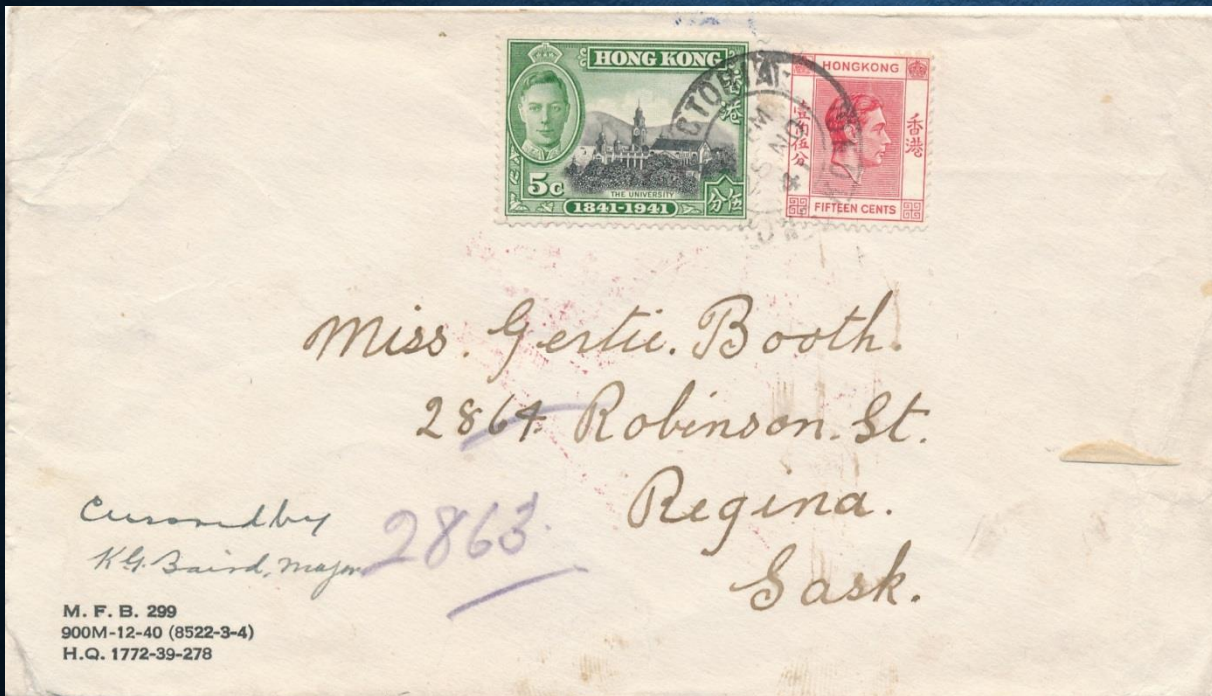 HONG KONG
香港
5c
THE UNIVERSITY
1841-1941
伍分
HONGKONG
壹角伍分
香港
FIFTEEN CENTS
VICTORIA
NO
41
Miss. Gertie. Booth.
2864 Robinson. St.
Regina.
Sask.
Censored by
K.G. Baird, Major
2863.
M. F. B. 299
900M-12-40 (8522-3-4)
H.Q. 1772-39-278